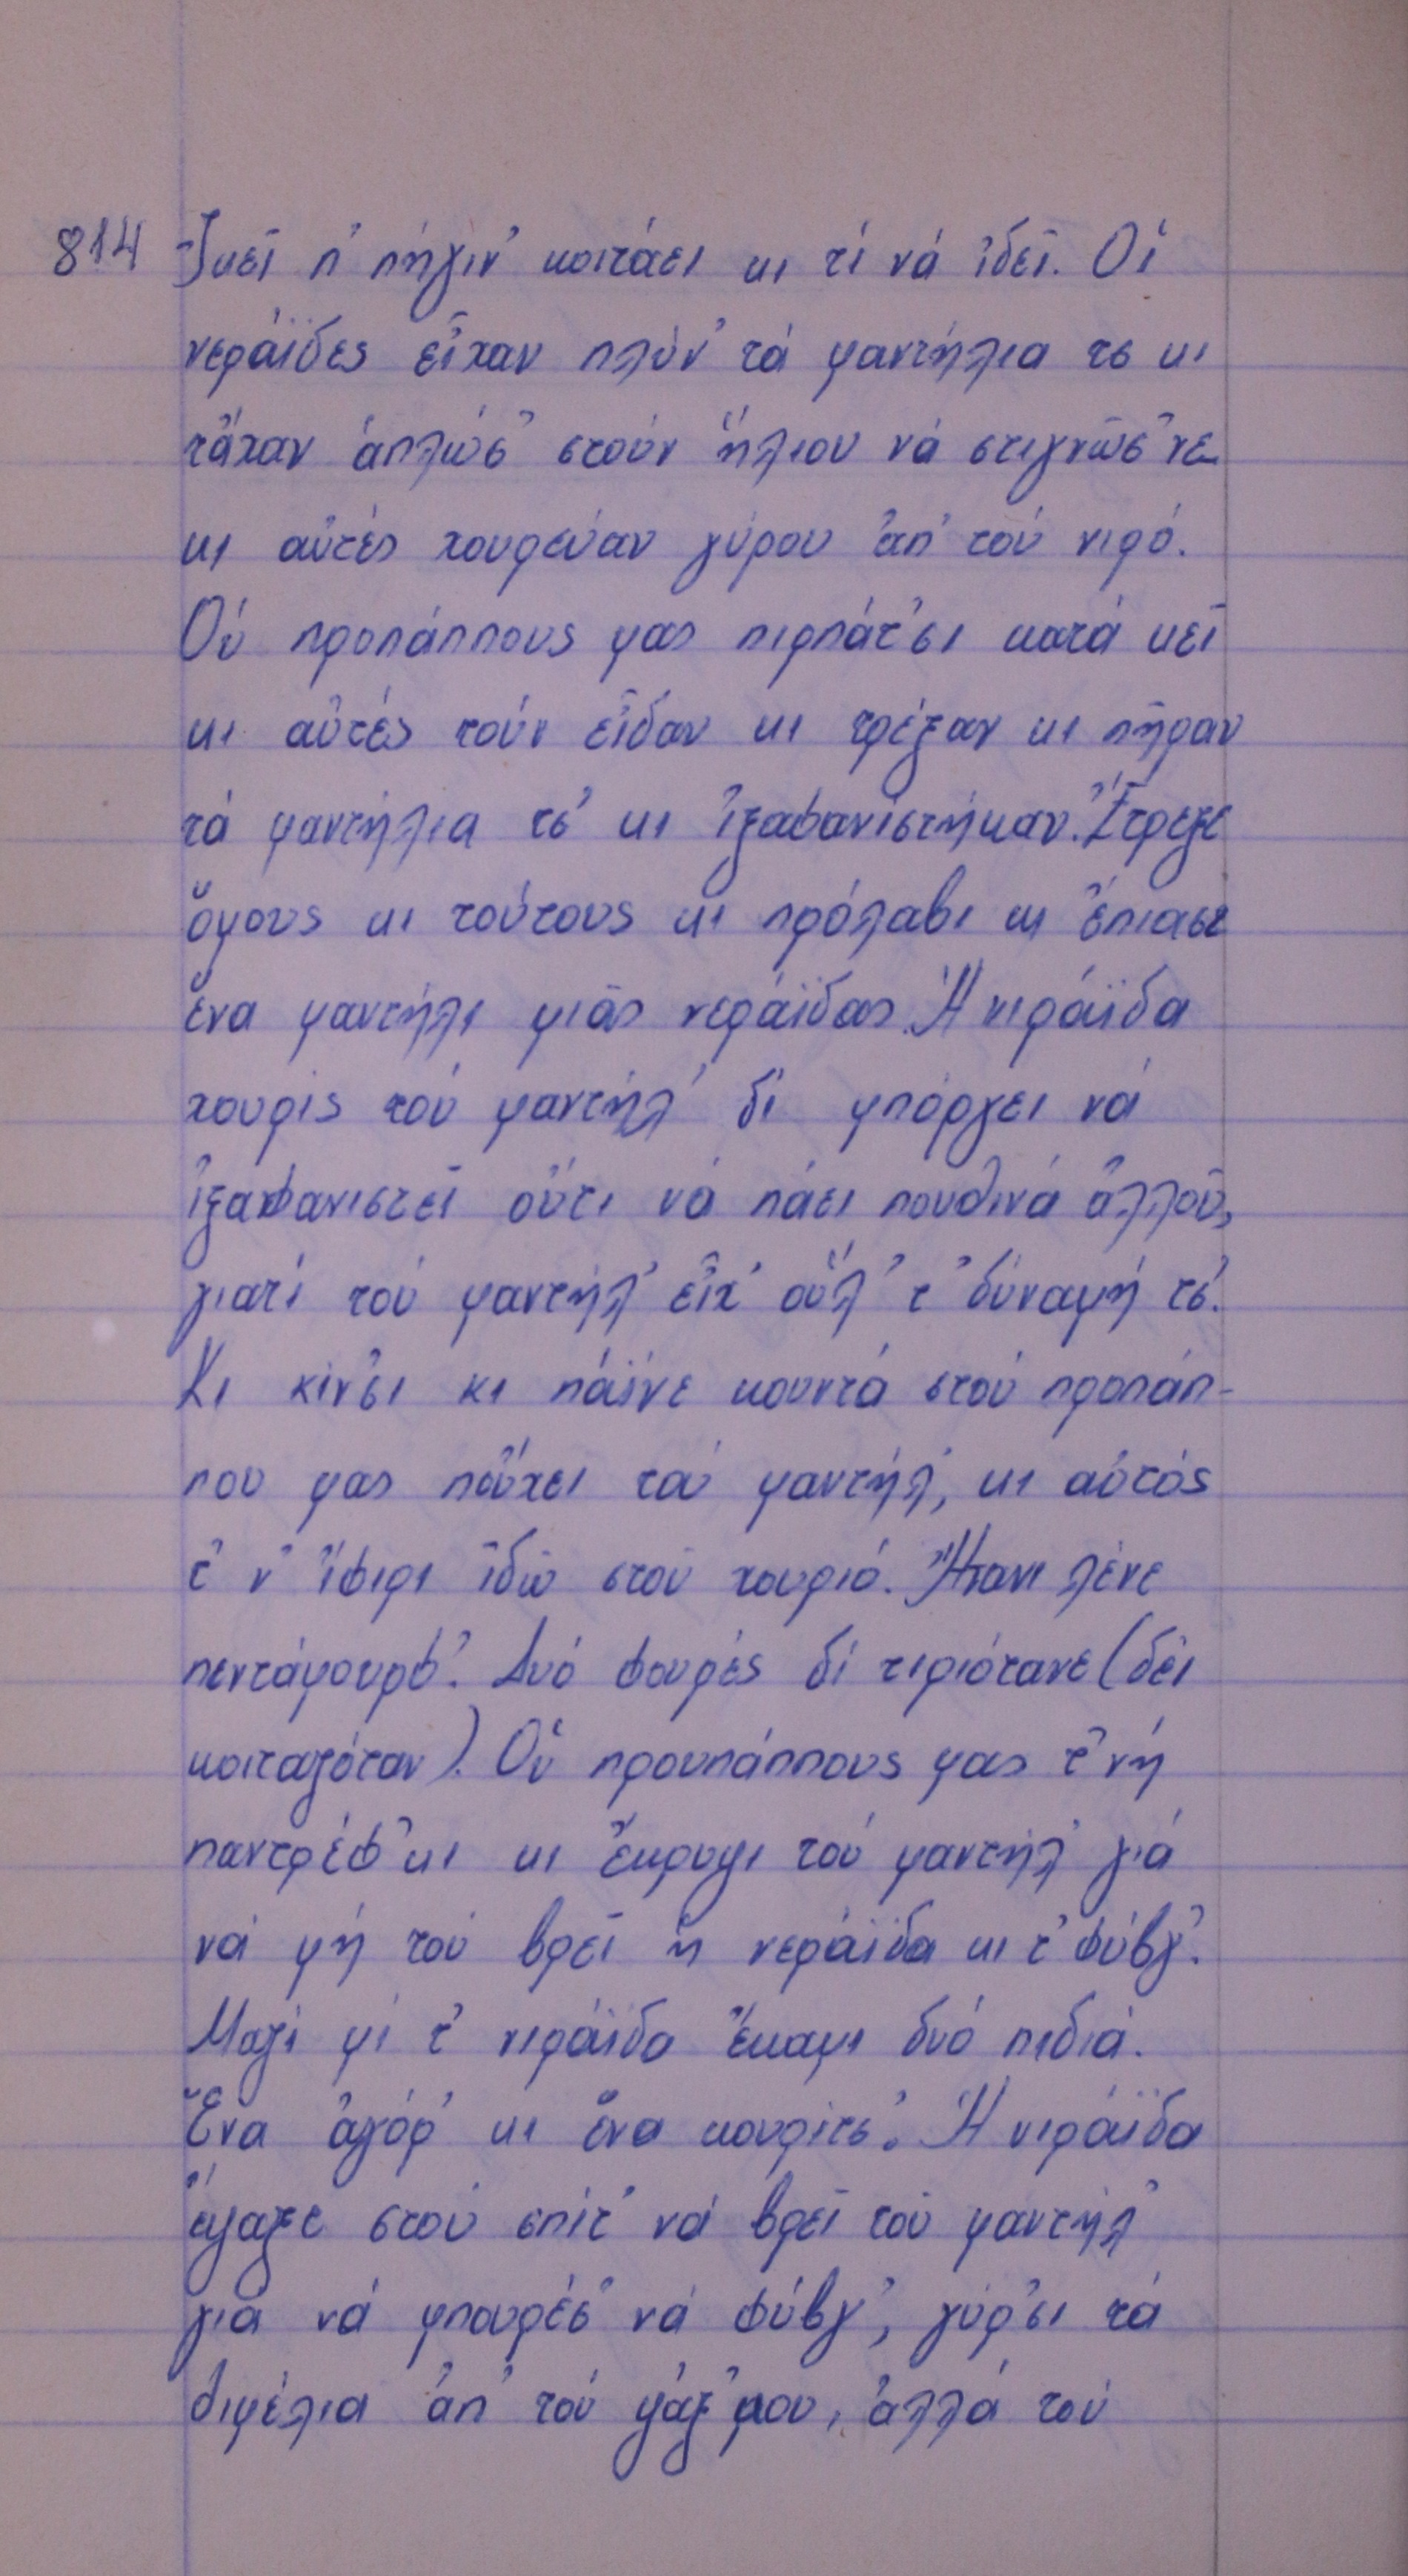 814 Ἰκεῖ π' πήγιν' κοιτάει κι τί νά ἰδεῖ. Οἱ
νεράϊδες εἶχαν πλύν' τά μαντήλια τς κι
τἄχαν ἁπλώσ' στούν ἥλιου νά στιγνώσ'νε
κι αὐτές χουρεύαν γύρου ἀπ' τού νιρό.
Οὑ προπάππους μας πιρπάτ'σι κατά κεῖ
κι αὐτές τούν εἶδαν κι τρέξαν κι πῆραν
τά μαντήλια τς' κι ἰξαφανιστήκαν. Ἔτρεξε
ὅμους κι τούτους κι πρόλαβι κι ἔπιασε
ἕνα μαντήλι μιᾶς νεράϊδας. Ἡ νιράϊδα
χουρίς τού μαντήλ' δί μπόργει νά
ἰξαφανιστεῖ οὔτι νά πάει πουθινά ἀλλοῦ,
γιατί τού μαντήλ' εἶχ' οὕλ' τ' δύναμή τς'.
Κι κίν'σι κι πάϊνε κουντά στού προπάπ-
που μας ποὔχει τού μαντήλ', κι αὐτός
τ' ν' ἤφιρι ἰδῶ στού χουριό. Ἤτανι λένε
πεντάμουρφ'. Δυό φουρές δί τιριότανε (δέι
κοιταζόταν). Οὑ προυπάππους μας τ' νή
παντρέφ'κι κι ἔκρυψι τού μαντήλ' γιά
νά μή τού βρεῖ ἡ νεράϊδα κι τ' φύβγ'.
Μαζί μί τ' νιράϊδα ἔκαμι δυό πιδιά.
Ἕνα ἀγόρ' κι ἕνα κουρίτς'. Ἡ νιράϊδα
ἔψαξε στού σπίτ' νά βρεῖ τού μαντήλ'
γιά νά μπουρέσ' νά φύβγ', γύρ'σι τά
θιμέλια ἀπ' τού ψάξ'μου, ἀλλά τού